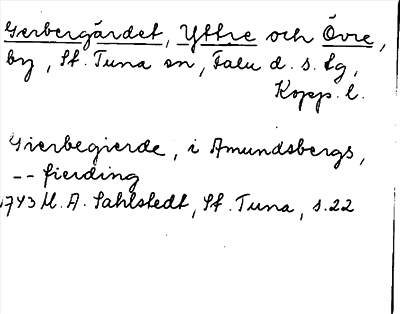 Gerbergärdet, Yttre och Övre,
by, St. Tuna sn, Falu d. s. lg,
Kopp. l.
Gierbegierde, i Amundsbergs,
-- fierding
1743 M. A. Sahlstedt, St. Tuna, s. 22